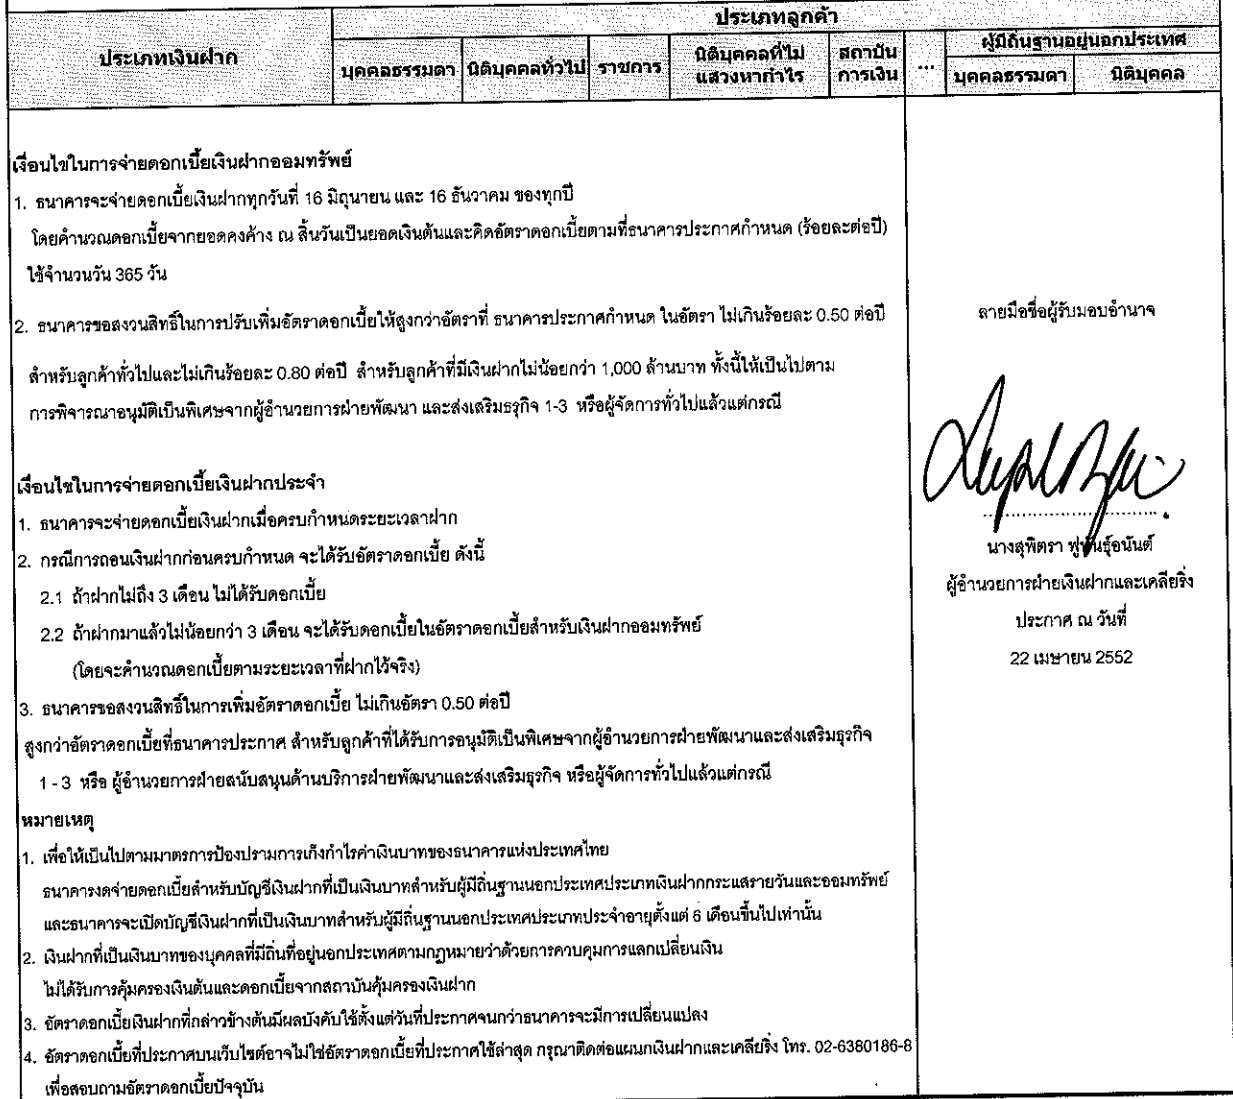 ประเภทเงินฝาก
ประเภทลูกค้า
บุคคลธรรมดา
นิติบุคคลทั่วไป
ราชการ
นิติบุคคลที่ไม่
แสวงหากำไร
สถาบัน
การเงิน
...
ผู้มีถิ่นฐานอยู่นอกประเทศ
บุคคลธรรมดา
นิติบุคคล
เงื่อนไขในการจ่ายดอกเบี้ยเงินฝากออมทรัพย์
1. ธนาคารจะจ่ายดอกเบี้ยเงินฝากทุกวันที่ 16 มิถุนายน และ 16 ธันวาคม ของทุกปี
โดยคำนวณดอกเบี้ยจากยอดคงค้าง ณ สิ้นวันเป็นยอดเงินต้นและคิดอัตราดอกเบี้ยตามที่ธนาคารประกาศกำหนด (ร้อยละต่อปี)
ใช้จำนวนวัน 365 วัน
2. ธนาคารขอสงวนสิทธิ์ในการปรับเพิ่มอัตราดอกเบี้ยให้สูงกว่าอัตราที่ ธนาคารประกาศกำหนด ในอัตรา ไม่เกินร้อยละ 0.50 ต่อปี
สำหรับลูกค้าทั่วไปและไม่เกินร้อยละ 0.80 ต่อปี สำหรับลูกค้าที่มีเงินฝากไม่น้อยกว่า 1,000 ล้านบาท ทั้งนี้ให้เป็นไปตาม
การพิจารณาอนุมัติเป็นพิเศษจากผู้อำนวยการฝ่ายพัฒนา และส่งเสริมธุรกิจ 1-3 หรือผู้จัดการทั่วไปแล้วแต่กรณี
เงื่อนไขในการจ่ายดอกเบี้ยเงินฝากประจำ
1. ธนาคารจะจ่ายดอกเบี้ยเงินฝากเมื่อครบกำหนดระยะเวลาฝาก
2. กรณีการถอนเงินฝากก่อนครบกำหนด จะได้รับอัตราดอกเบี้ย ดังนี้
2.1 ถ้าฝากไม่ถึง 3 เดือน ไม่ได้รับดอกเบี้ย
2.2 ถ้าฝากมาแล้วไม่น้อยกว่า 3 เดือน จะได้รับดอกเบี้ยในอัตราดอกเบี้ยสำหรับเงินฝากออมทรัพย์
(โดยจะคำนวณดอกเบี้ยตามระยะเวลาที่ฝากไว้จริง)
3. ธนาคารขอสงวนสิทธิ์ในการเพิ่มอัตราดอกเบี้ย ไม่เกินอัตรา 0.50 ต่อปี
สูงกว่าอัตราดอกเบี้ยที่ธนาคารประกาศ สำหรับลูกค้าที่ได้รับการอนุมัติเป็นพิเศษจากผู้อำนวยการฝ่ายพัฒนาและส่งเสริมธุรกิจ
1 - 3 หรือ ผู้อำนวยการฝ่ายสนับสนุนด้านบริการฝ่ายพัฒนาและส่งเสริมธุรกิจ หรือผู้จัดการทั่วไปแล้วแต่กรณี
หมายเหตุ
1. เพื่อให้เป็นไปตามมาตรการป้องปรามการเก็งกำไรค่าเงินบาทของธนาคารแห่งประเทศไทย
ธนาคารงดจ่ายดอกเบี้ยสำหรับบัญชีเงินฝากที่เป็นเงินบาทสำหรับผู้มีถิ่นฐานนอกประเทศประเภทเงินฝากกระแสรายวันและออมทรัพย์
และธนาคารจะเปิดบัญชีเงินฝากที่เป็นเงินบาทสำหรับผู้มีถิ่นฐานนอกประเทศประเภทประจำอายุตั้งแต่ 6 เดือนขึ้นไปเท่านั้น
2. เงินฝากที่เป็นเงินบาทของบุคคลที่มีถิ่นที่อยู่นอกประเทศตามกฎหมายว่าด้วยการควบคุมการแลกเปลี่ยนเงิน
ไม่ได้รับการคุ้มครองเงินต้นและดอกเบี้ยจากสถาบันคุ้มครองเงินฝาก
3. อัตราดอกเบี้ยเงินฝากที่กล่าวข้างต้นมีผลบังคับใช้ตั้งแต่วันที่ประกาศจนกว่าธนาคารจะมีการเปลี่ยนแปลง
4. อัตราดอกเบี้ยที่ประกาศบนเว็บไซต์อาจไม่ใช่อัตราดอกเบี้ยที่ประกาศใช้ล่าสุด กรุณาติดต่อแผนกเงินฝากและเคลียริ่ง โทร. 02-6380186-8
เพื่อสอบถามอัตราดอกเบี้ยปัจจุบัน
ลายมือชื่อผู้รับมอบอำนาจ
นางสุพิตรา ฟูพันธุ์อนันต์
ผู้อำนวยการฝ่ายเงินฝากและเคลียริ่ง
ประกาศ ณ วันที่
22 เมษายน 2552